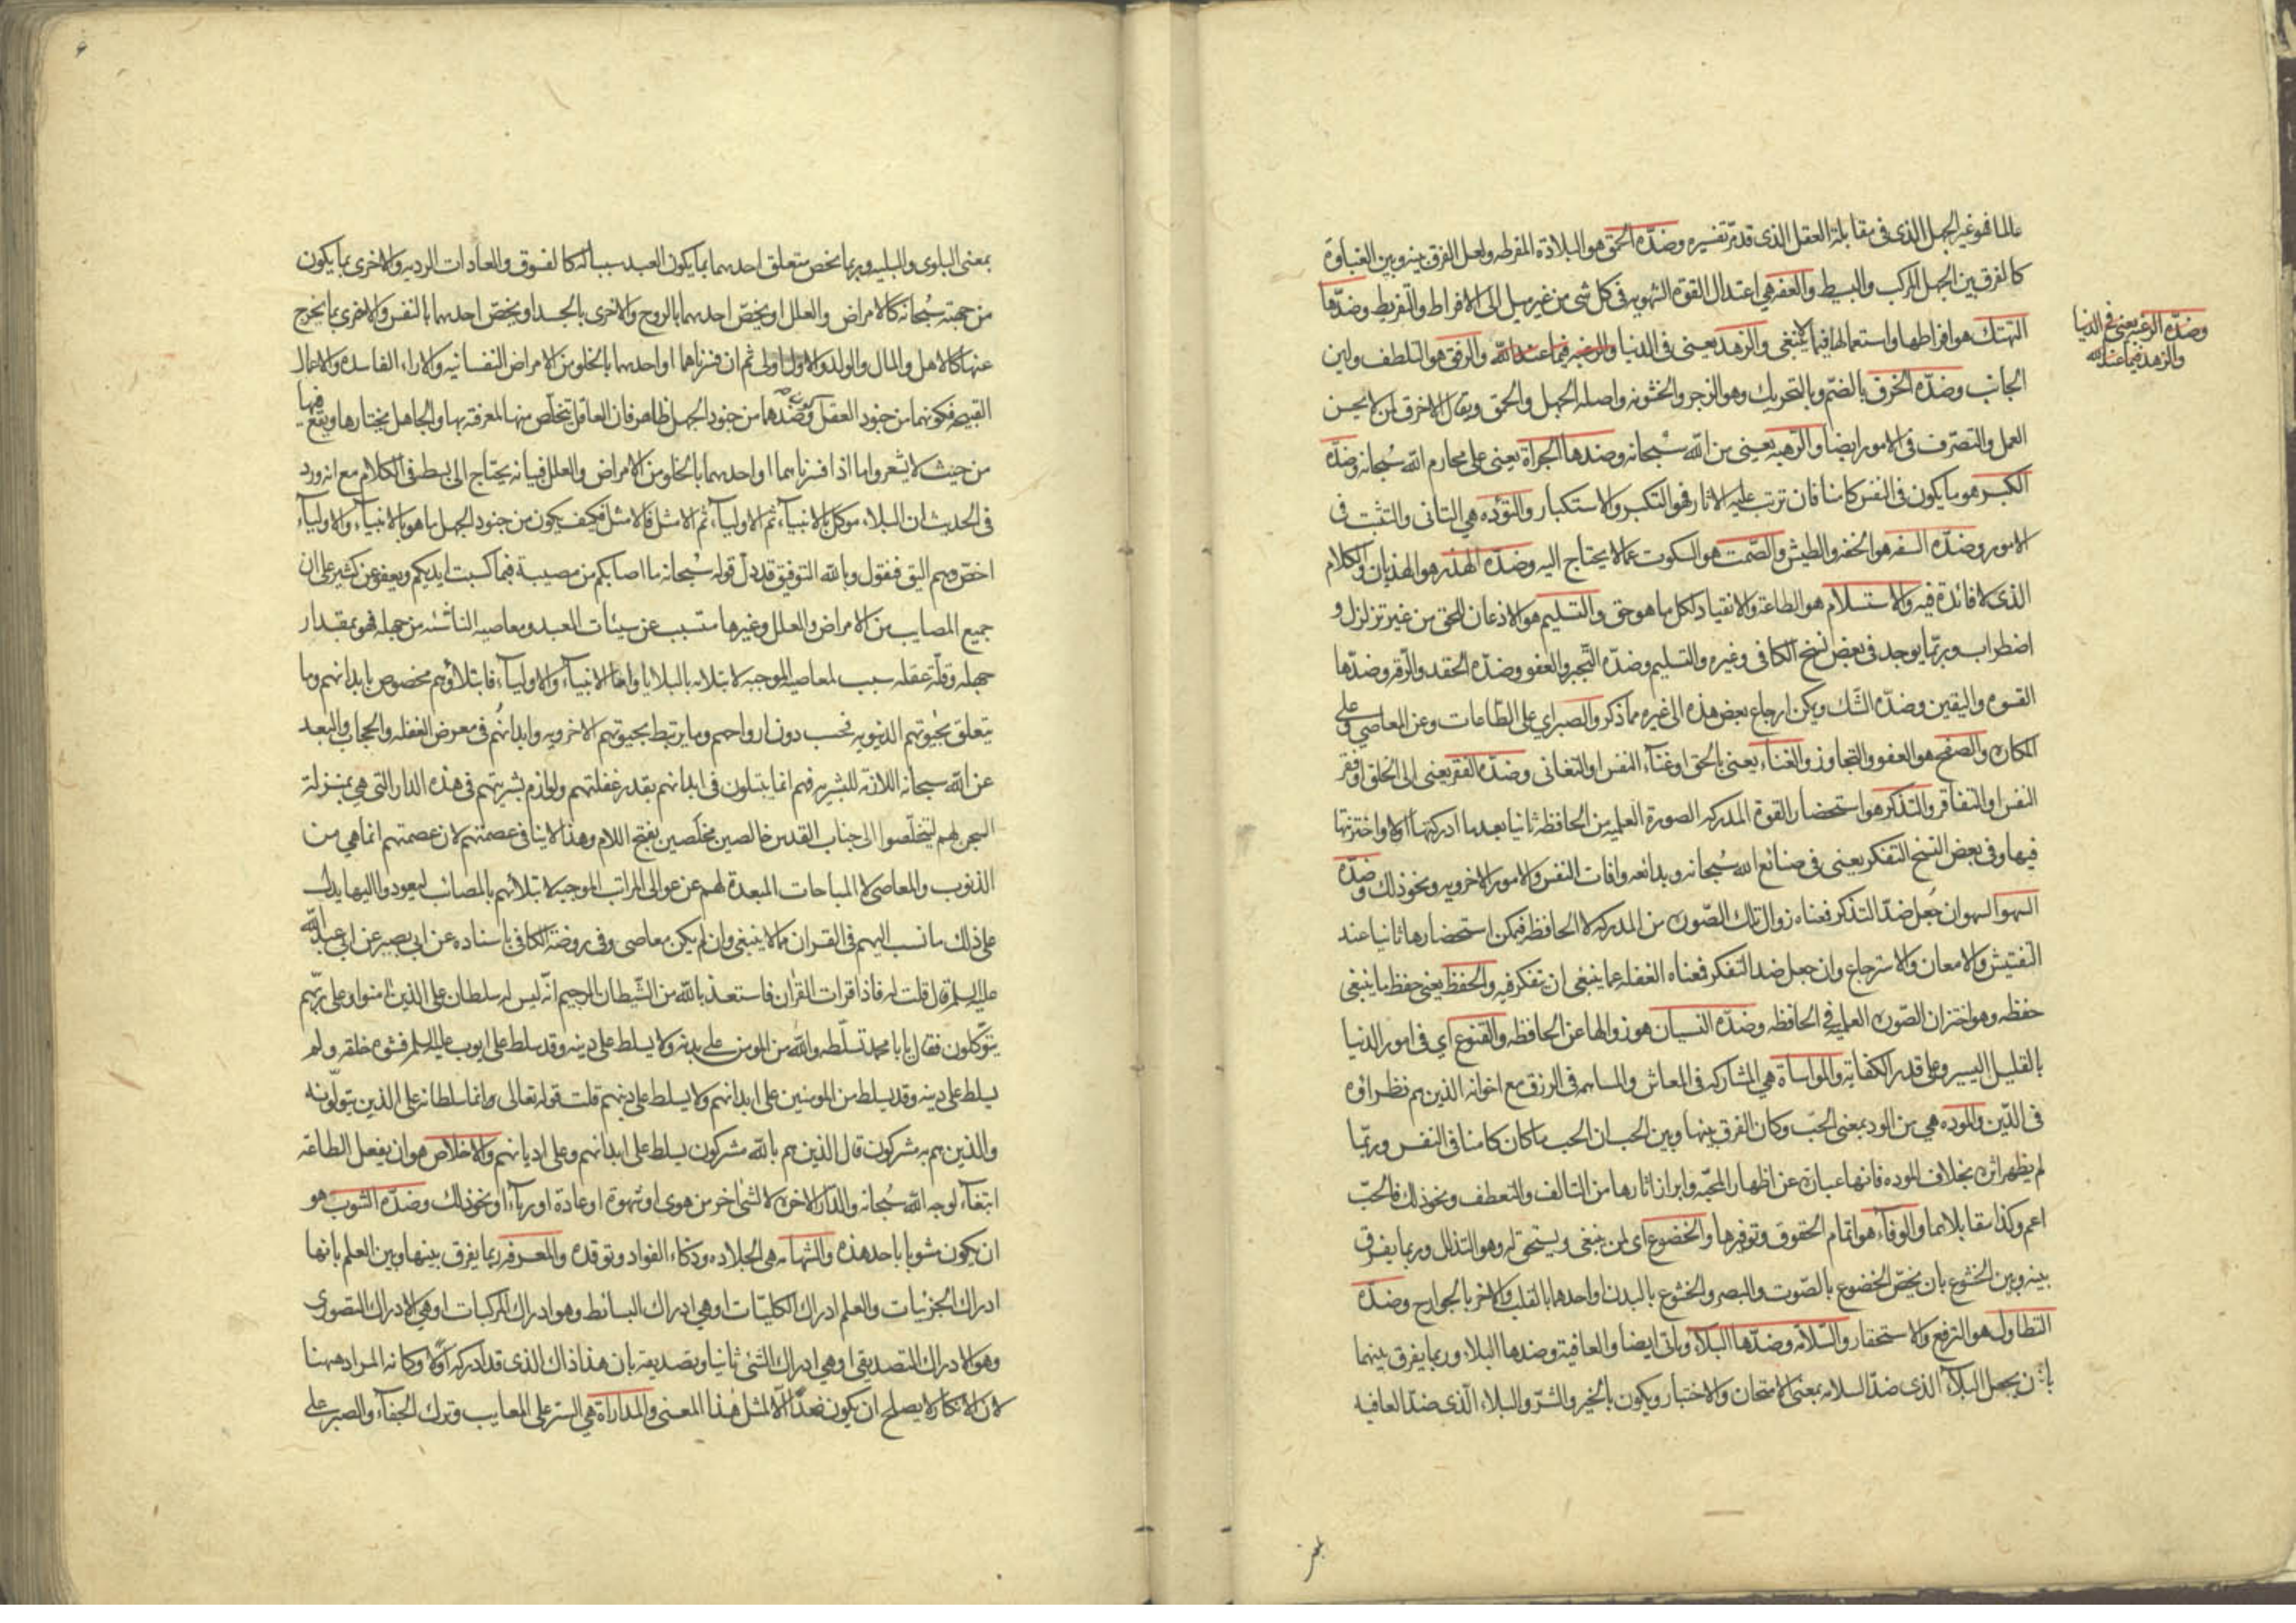 عالما فهو غير الجهل الذى فى مقابلة العقل الذى قد مر تفسيره وضدّه الحمق هو البلادة المفرطه ولعل الفرق بينه وبين الغباوة
كالفرق بين الجهل المركب والبسيط والعفه هى اعتدال القوة الشهويه فى كل شى من غير ميل الى الافراط والتفريط وضدّها
التهتك هو افراطها واستعمالها فيما لا ينبغى والزهد يعنى فى الدنيا والرغبه فيما عند الله والرفق هو التلطف ولين
وضدّه الرغبه يعنى فى الدنيا
والزهد فيما عند الله
الجانب وضدّه الخرق بالضمّ وبالتحريك وهو الزجر والخشونه واصله الجهل والحمق ويقال الاخرق لمن لا يحسن
العمل والتصرّف فى الامور ايضا والرّهبه يعنى من الله سُبحانه وضدها الجراة يعنى على محارم الله سُبحانه وضدّه
الكبر هو ما يكون فى النفس كامنا فان ترتب عليه الاثار فهو التكبر والاستكبار والتؤده هى التانى والتثبت فى
الامور وضدّه السفه هو الخفه والطيش والصّمت هو السكوت عما لا يحتاج اليه وضدّه الهذر هو الهذيان والكلام
الذى لا فائدة فيه والاستسلام هو الطاعة والانقياد لكل ما هو حق والتسليم هو الاذعان للحق من غير تزلزل و
اضطراب وربّما يوجد فى بعض نسخ الكافى وغيره والتسليم وضدّه التجبر والعفو وضدّه الحقد والرّقه وضدّها
القسوه واليقين وضدّه الشّك ويمكن ارجاع بعض هذه الى غيره مما ذكر والصبر اي على الطّاعات وعن المعاصي وعلى
المكاره والصفح هو العفو والتجاوز والغناء يعنى بالحق او غناء النفس او التغانى وضدّه الفقر يعنى الى الخلق او فقر
النفس او التفاقر والتذكر هو استحضار القوة المدركه الصورة العلميه من الحافظه ثانيا بعد ما ادركتها اولا واختزنتها
فيها وفى بعض النسخ التفكر يعنى فى صنائع الله سُبحانه وبدائعه وافات النفس والامور الاخرويه ونحو ذلك وضدّه
السهو السهو ان جُعل ضدّ التذكر فمعناه زوال تلك الصّوره من المدركه لا الحافظه فيمكن استحضارها ثانيا عند
التفتيش والامعان والاسترجاع وان جعل ضد التفكر فمعناه الغفله عما ينبغى ان يتفكر فيه والحفظ يعنى حفظ ما ينبغى
حفظه وهو اختزان الصّوره العلمية في الحافظه وضدّه النسيان هو زوالها عن الحافظه والقنوع اي فى امور الدنيا
بالقليل اليسير وعلى قدر الكفاية والمواساة هى المشاركه فى المعاش والمساهمه فى الرزق مع اخوانه الذين هم نظراؤه
فى الدّين والموده هى من الود بمعنى الحبّ وكان الفرق بينها وبين الحب ان الحب ما كان كامنا فى النفس وربّما
لم يظهر اثره بخلاف الموده فانها عبارة عن اظهار المحبّه وابراز اثارها من التالف والتعطف ونحو ذلك فالحبّ
اعم وكذا مقابلاهما والوفاء هو اتمام الحقوق وتوفيرها والخضوع اى لمن ينبغى ويستحق له وهو التذلل وربما يفرق
بينه وبين الخشوع بان يخصّ الخضوع بالصّوت والبصر والخشوع بالبدن او احدهما بالقلب والاخر بالجوارح وضدّه
التطاول هو الترفع والاستحقار والسّلامه وضدّها البلاء وياتى ايضا والعافية وضدها البلاء وربما يفرق بينهما
بان يجعل البلاء الذى ضدّ السلامه بمعنى الامتحان والاختبار ويكون بالخير والشرّ والبلاء الّذى ضدّ العافيه
بمعنى البلوى والبليه وربما يخص متعلق احدهما بما يكون العبد سببا له كالفسوق والعادات الرديه والاخرى بما يكون
من جهته سُبحانه كالامراض والعلل او يخصّ احدهما بالروح والاخرى بالجسد او يخصّ احدهما بالنفس والاخرى بما يخرج
عنها كالاهل والمال والولد والاول اولى ثم ان فسّرناهما او احدهما بالخلو من الامراض النفسانيه والاراء الفاسده والاعمال
القبيحه فكونهما من جنود العقل وضدهما من جنود الجهل ظاهر فان العاقل يتخلّص منها لمعرفته بها والجاهل يختارها ويقع فيها
من حيث لا يشعر واما اذا فسرناهما او احدهما بالخلو من الامراض والعلل فبيانه يحتاج الى بسط فى الكلام مع انه ورد
فى الحديث ان البلاء موكل بالانبياء ثم الاولياء ثم الامثل فالامثل فكيف يكون من جنود الجهل ما هو بالانبياء والاولياء
اخصّ وبهم اليق فنقول وبالله التوفيق قد دلّ قوله سُبحانه ما اصابكم من مصيبة فبما كسبت ايديكم ويعفو عن كثير على ان
جميع المصايب من الامراض والعلل وغيرها متسبب عن سيئات العبد ومعاصيه الناشئه من جهله فهو بمقدار
جهله وقلّة عقله سبب لمعاصيه الموجبه لابتلائه بالبلايا واما الانبياء والاولياء فابتلاؤهم مخصوص بابدانهم وما
يتعلق بحيوتهم الدنيويه فحسب دون ارواحهم وما يرتبط بحيوتهم الاخرويه وابدانهُم فى معرض الغفله والحجاب والبعد
عن الله سبحانه اللازمة للبشريه فهم انما يبتلون فى ابدانهم بقدر غفلتهم ولوازم بشريتهم فى هذه الدار التى هى بمنزلة
السجن لهم ليتخلّصوا الى جناب القدس خالصين مخلَصين بفتح اللام وهذا لا ينافى عصمتهم لان عصمتهم انما هي من
الذنوب والمعاصى لا المباحات المبعدة لهم عن عوالى المراتب الموجبه لابتلائهم بالمصائب ليعودوا اليها يدلّ
على ذلك ما نسب اليهم فى القران مما لا ينبغى وان لم يكن معاصى وفى روضة الكافى باسناده عن ابى بصير عن ابى عبد الله
عليه السلم قال قلت له فاذا قرات القران فاستعذ بالله من الشّيطان الرجيم انّه ليس له سلطان على الذين امنوا وعلى ربّهم
يتوكّلون فقال يا با محمد تسلّطه والله من المومن على بدنه ولا يسلط على دينه وقد سلط على ايوب عليه السلم فشوه خلقه ولم
يسلط على دينه وقد يسلط من المومنين على ابدانهم ولا يسلط على دينهم قلت قوله تعالى وانما سلطانه على الذين يتولّونه
والذين هم به مشركون قال الذين هم بالله مشركون يسلط على ابدانهم وعلى اديانهم والاخلاص هو ان يفعل الطاعة
ابتغاء لوجه الله سُبحانه والدّار الاخره لا لشئ اخر من هوى او شهوة او عادة او رياء او نحو ذلك وضدّه الشوب هو
ان يكون مشوبا باحد هذه والشهامه هى الجلاده وذكاء الفواد وتوقده والمعرفه ربما يفرق بينها وبين العلم بانها
ادراك الجزئيات والعلم ادراك الكليّات او هي ادراك البسائط وهو ادراك المركبات او هي الادراك التصورى
وهو الادراك التصديقى او هي ادراك الشئ ثانيا وتصديقه بان هذا ذاك الذى قد ادركه اوّلا وكانه المراد ههنا
لان الانكار لا يصلح ان يكون ضدّا الّا لمثل هذا المعنى والمداراة هي الستر على المعايب وترك الجفاء والصبر على